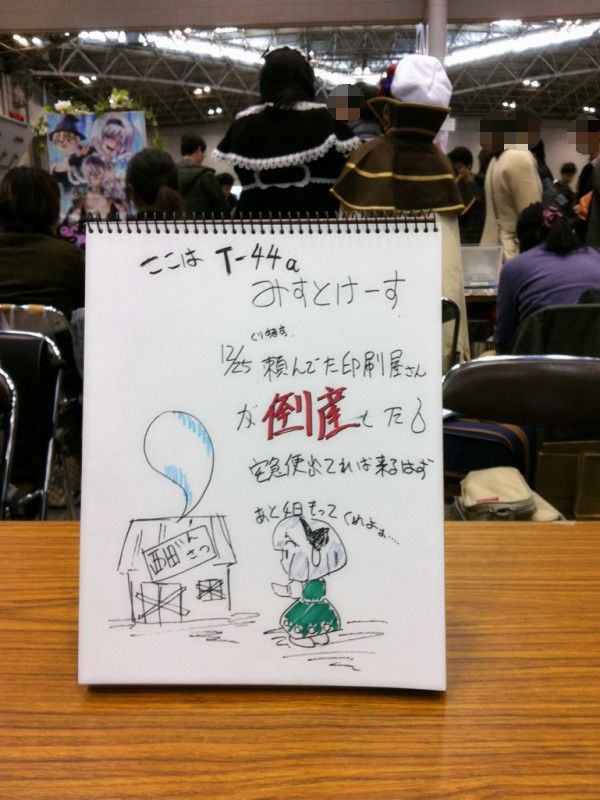 ここは T-44a
みすとけーす
くりすます
12/25 頼んでた印刷屋さん
が 倒産した
宅急便出てれば来るはず
あと4日もってくれよぉ…
西田いんさつ